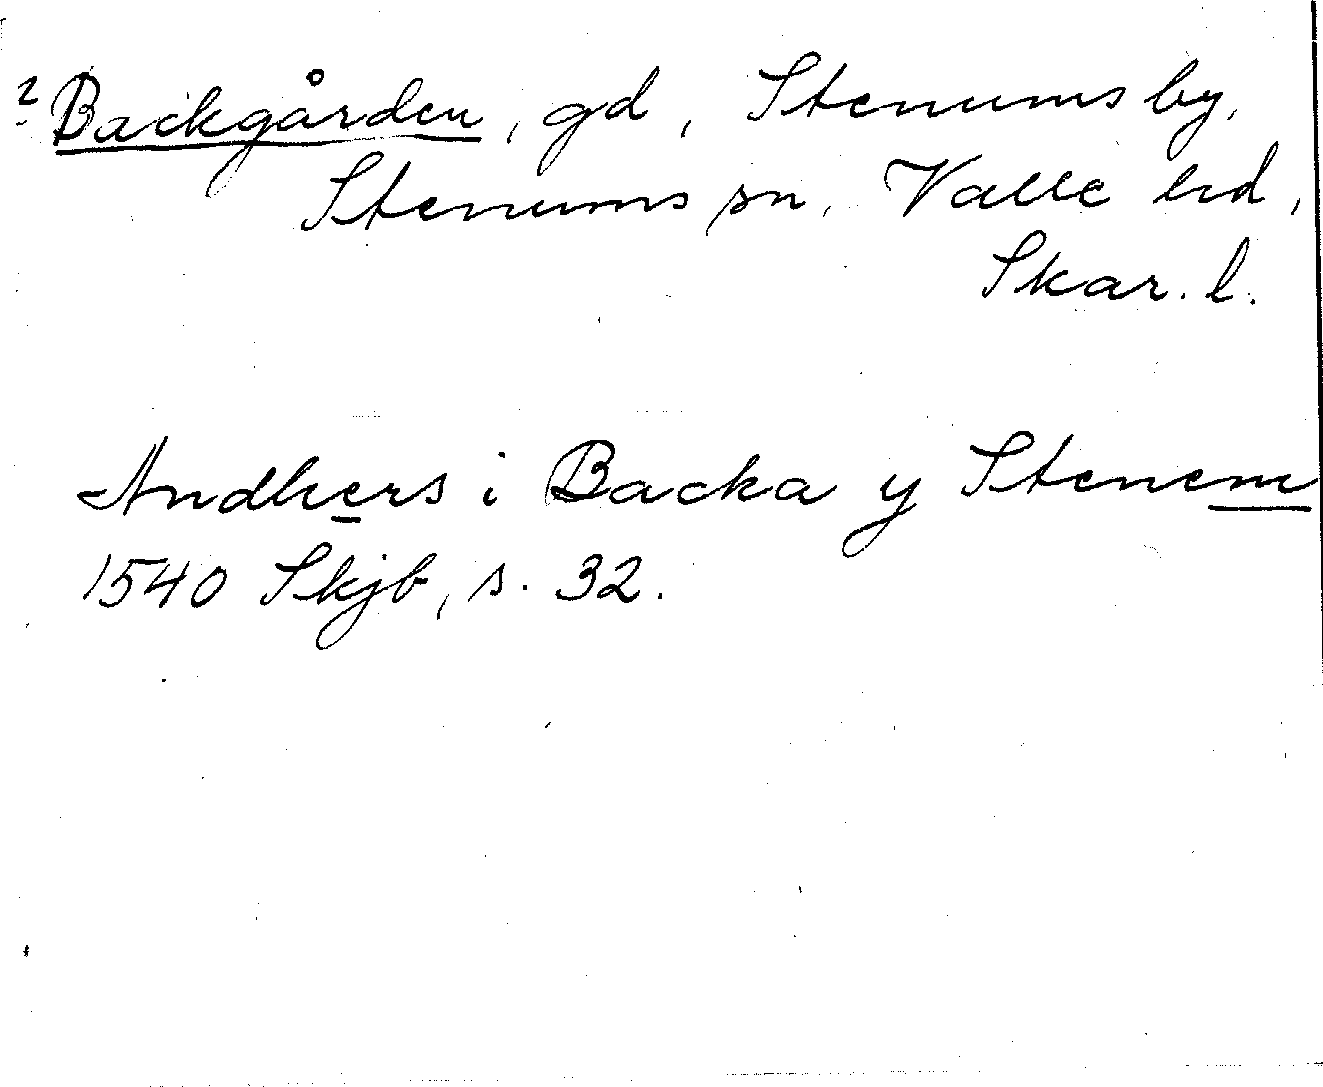 ? Backgården, gd, Stenums by,
Stenums sn, Valle hd,
Skar. l.
Andhers i Backa y Stenem
1540 Skjb, s. 32.